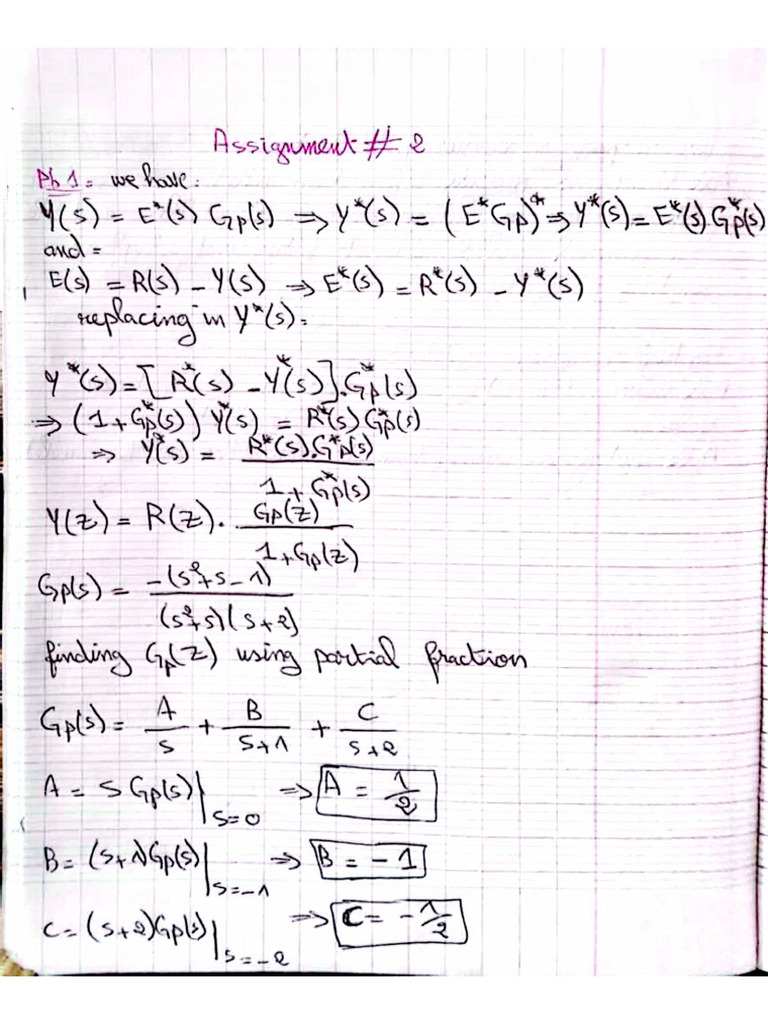 Assignment # 2
Pb 1 = we have:
Y(s) = E*(s) Gp(s) ⇒ Y*(s) = (E*Gp)* ⇒ Y*(s) = E*(s).Gp*(s)
and =
E(s) = R(s) - Y(s) ⇒ E*(s) = R*(s) - Y*(s)
replacing in Y*(s) =
Y*(s) = [R*(s) - Y*(s)].Gp*(s)
⇒ (1 + Gp*(s)) Y*(s) = R*(s) Gp*(s)
⇒ Y*(s) = R*(s).G*p(s) / 1 + Gp*(s)
Y(z) = R(z). Gp(z) / 1 + Gp(z)
Gp(s) = -(s²+s-1) / (s²+s)(s+2)
finding Gp(z) using partial fraction
Gp(s) = A/s + B/s+1 + C/s+2
A = s Gp(s)|s=0 ⇒ A = 1/2
B = (s+1)Gp(s)|s=-1 ⇒ B = -1
C = (s+2)Gp(s)|s=-2 ⇒ C = -1/2